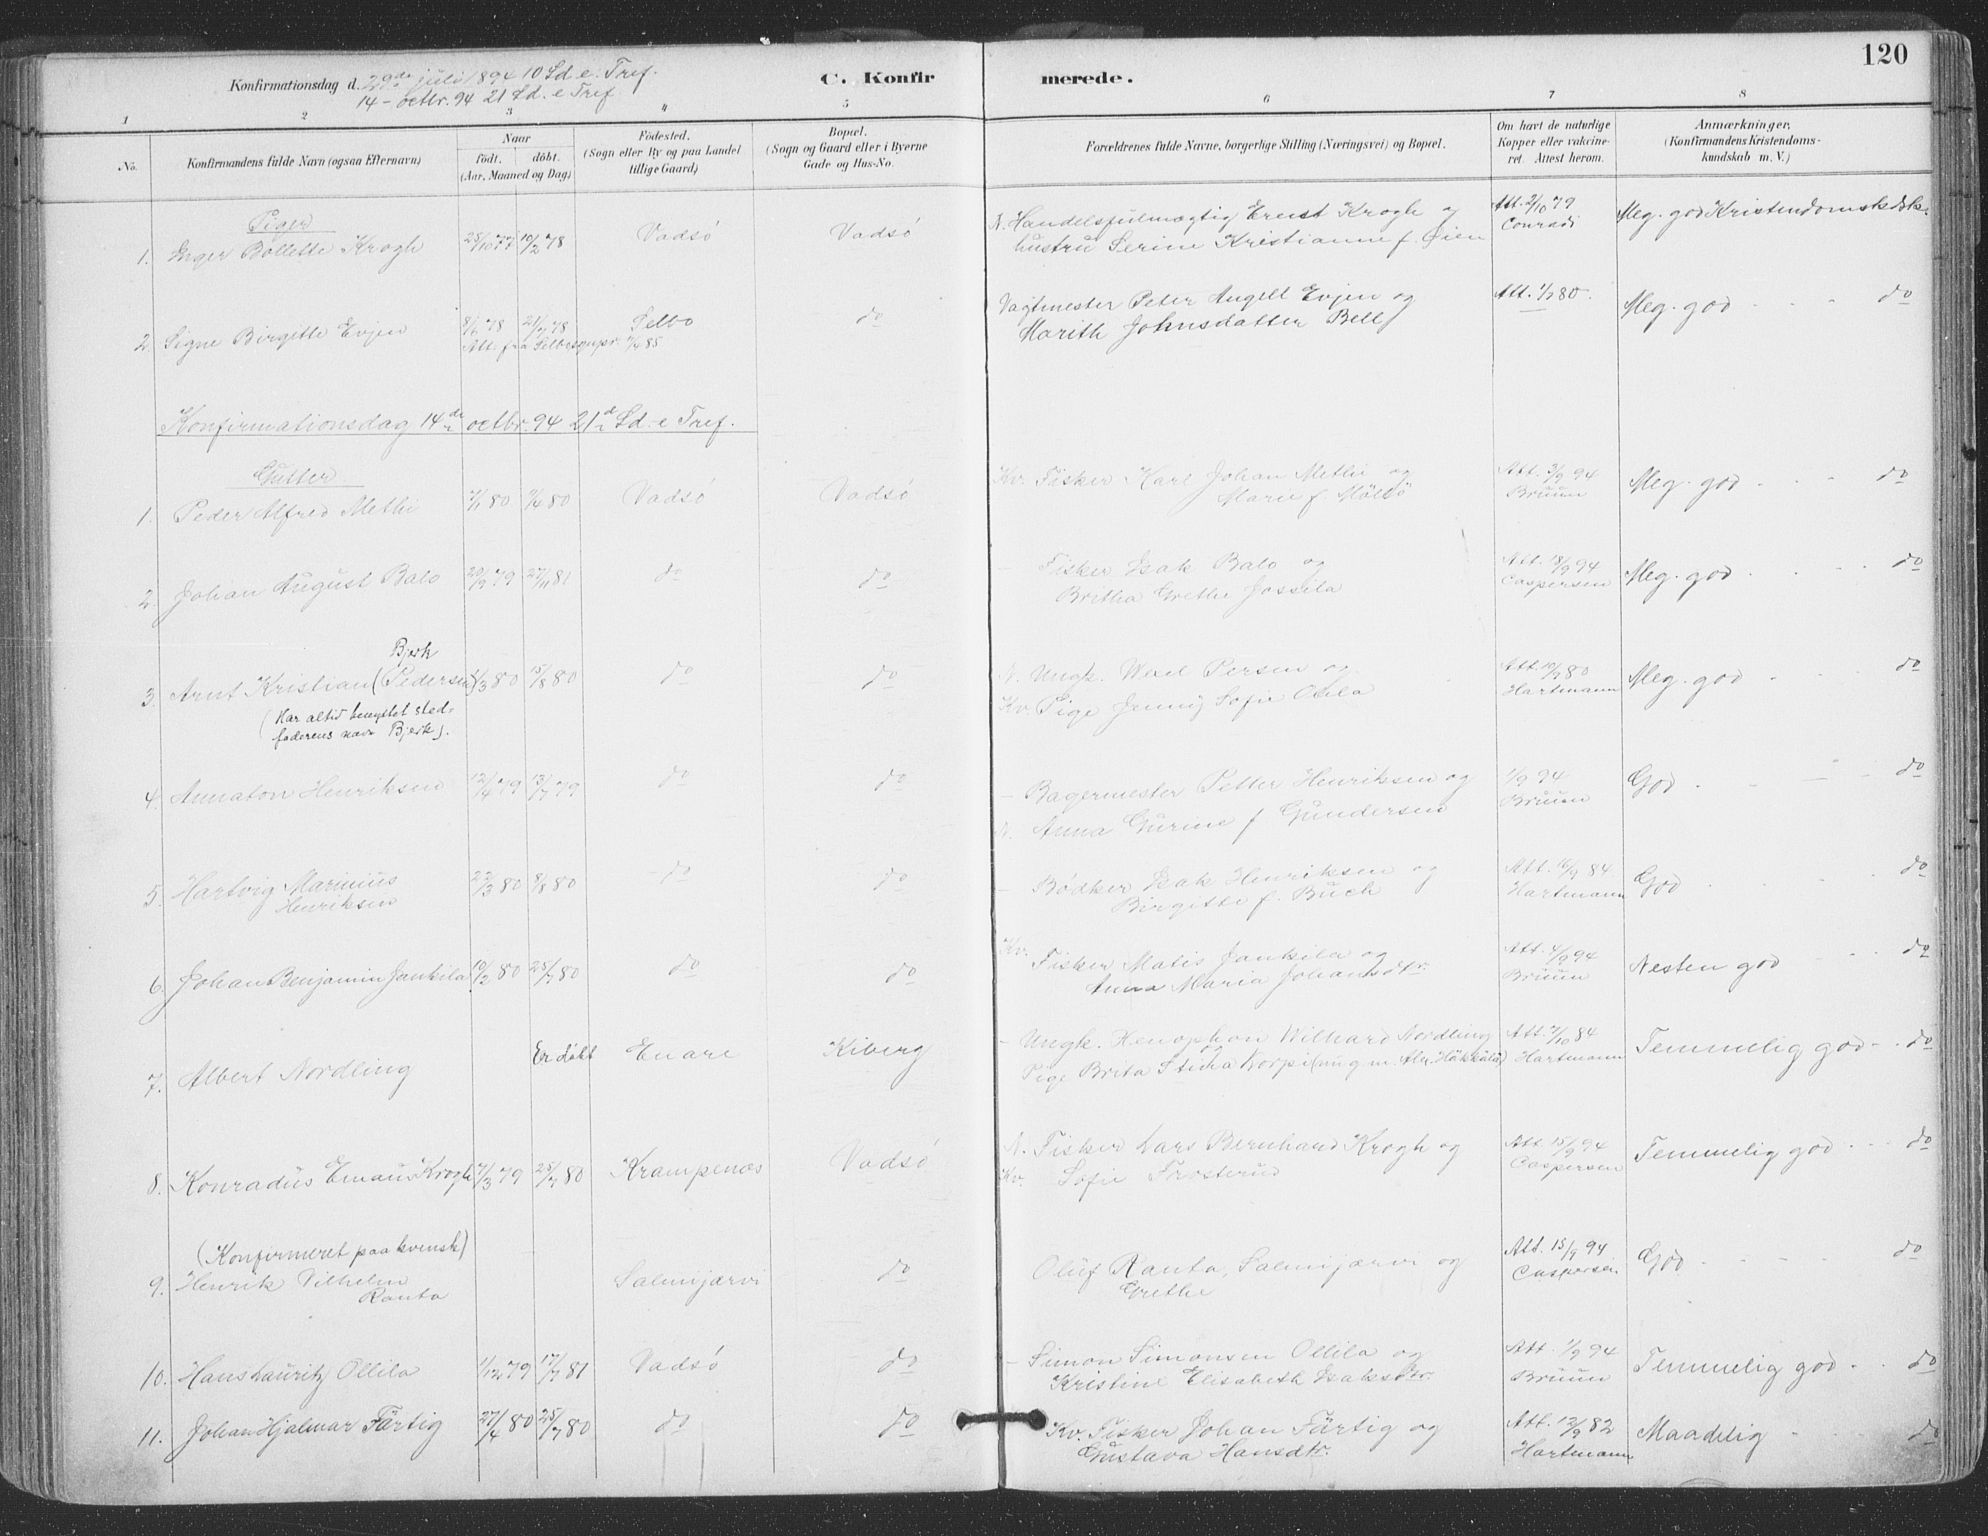 120
Konfirmationsdag d. 29de juli 1894 10 Sd. e. Tref.
14 - octbr. 94 21 Sd. e Tref
C. Konfirmerede.
1 2 3 4 5 6 7 8
No. Konfirmandens fulde Navn (ogsaa Efternavn) Naar født. døbt. (Aar, Maaned og Dag) Fødested. (Sogn eller By og paa Landet tillige Gaard) Bopæl. (Sogn og Gaard eller i Byerne Gade og Hus-No. Forældrenes fulde Navne, borgerlige Stilling (Næringsvei) og Bopæl. Om havt de naturlige Kopper eller vakcineret. Attest herom. Anmærkninger. (Konfirmandens Kristendomskundskab m. V.)
Piger
1. Inger Bollette Krogh 28/10 77 10/2 78 Vadsö Vadsö N. Handelsfulmægtig Ernst Krogh og Att. 2/10 79 Meg. god Kristendomskdsk.
hustru Serine Kristianne f. Øien Conradi
2. Signe Birgitte Evjen 8/6 78 21/7 78 Selbo do Vagtmester Peter Angell Evjen og Att. 1/7 80. Meg. god - - - do
Att. fra Selbo sgnpr. 4/4 85 Marith Johnsdatter Bell
Konfirmationsdag 14de octbr. 94 21de Sd. e Tref.
Gutter
1. Peder Alfred Methi 7/1 80 7/4 80 Vadsö Vadsö Kv. Fisker Karl Johan Methi og Att. 3/9 94 Meg. god - - - do
Marie f. Mölsö Bruun
2. Johan August Balo 20/9 79 27/11 81 do do - Fisker Isak Balo og Att. 18/9 94 Meg. god - - - do
Britha Grethe Jossila Caspersen
Bjerk
3. Arnt Kristian (Pedersen) 1/3 80 15/8 80 do do N. Ungk. Wexel Persen og Att. 10/7 80 Meg. god - - - do
(Har altid benyttet sted- Kv. Pige Jenny Sofie Ollila Hartmann
faderens navn Bjerk).
4. Annaton Henriksen 12/4 79 13/7 79 do do - Bagermester Petter Henriksen og 1/9 94 God - - - do
N. Anna Gurine f Gundersen Bruun
5. Hartvig Marinius 22/3 80 8/8 80 do do - Bødker Isak Henriksen og Att. 16/9 84. God - - - do
Henriksen Birgitte f. Buch Hartmann
6. Johan Benjamin Jankila 10/2 80 25/7 80 do do Kv. Fisker Matis Jankila og Att. 4/9 94 Nesten god - - do
Anna Maria Johansdtr. Bruun
7. Albert Nordling Er döbt Enare Kiberg - Ungk. Henophon Wilhard Nordling Att. 7/10 84 Temmelig god - - do
og Pige Brita Stina Korpi Hartmann
8. Konradus Emaus Krogh 7/3 79 25/7 80 Krampenæs Vadsö N. Fisker Lars Bernhard Krogh og Att. 15/9 94 Temmelig god - - - do
Kv. Sofie Frosterud Caspersen
(Konfirmeret paa kvensk)
9. Henrik Vilhelm Salmijærvi do Oluf Ranta, Salmijærvi og Att. 15/9 94 God - - - do
Ranta Grethe Caspersen
10. Hans Lauritz Ollila 1/12 79 17/7 81 Vadsö do - Simon Simonsen Ollila og Att. 1/9 94 Temmelig god - - do
Kristine Elisabeth Isaksdtr. Bruun
11. Johan Hjalmar Färtig 27/4 80 25/7 80 do do Kv. Fisker Johan Färtig og Att. 12/9 82 Maadelig - - do
Gustava Hansdtr. Hartmann